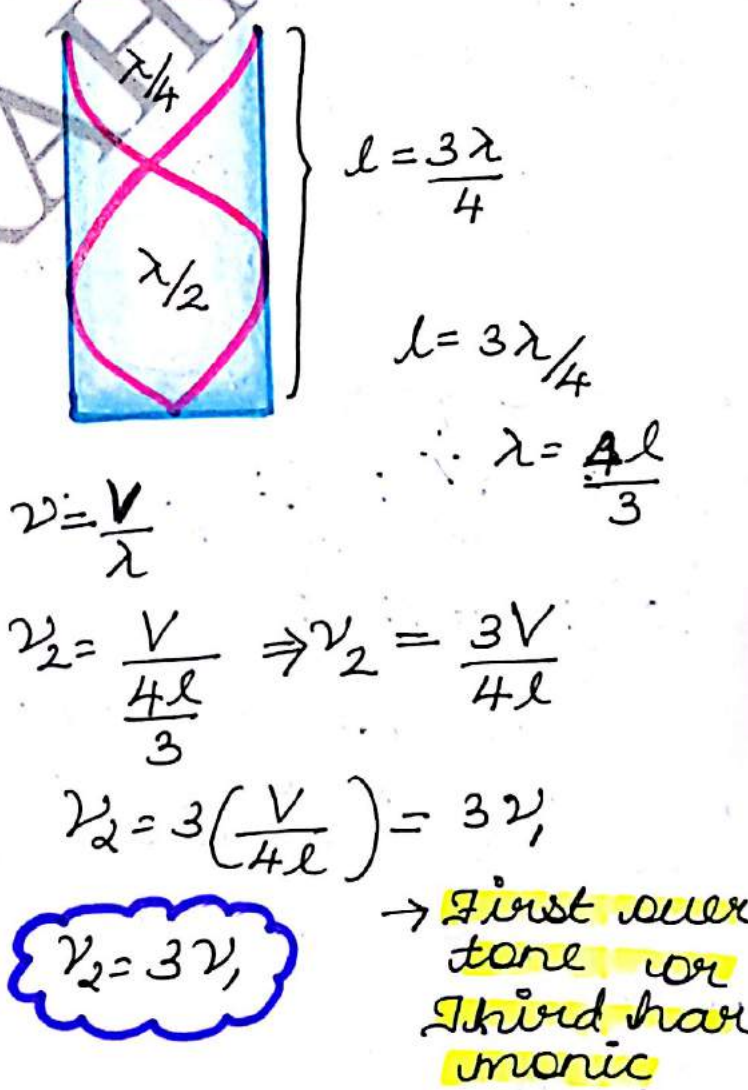 AHI
λ/4
l = 3λ/4
λ/2
l = 3λ/4
∴ λ = 4l/3
ν = V/λ
ν₂ = V/(4l/3) ⇒ ν₂ = 3V/4l
ν₂ = 3(V/4l) = 3ν₁
ν₂ = 3ν₁
→ First over
tone or
Third har
monic